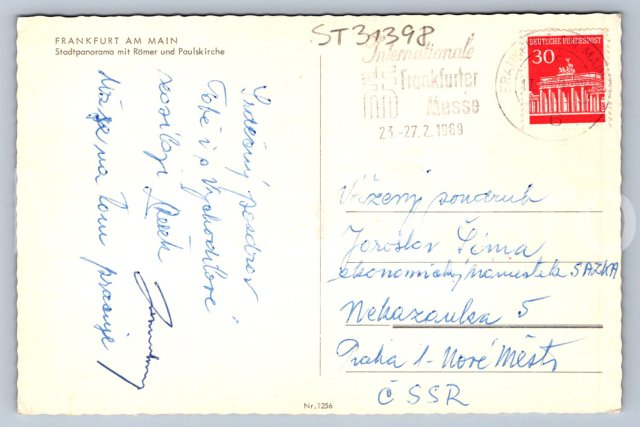 FRANKFURT AM MAIN
Stadtpanorama mit Römer und Paulskirche
ST31398
Internationale
Frankfurter
Messe
23.-27.2.1969
DEUTSCHE BUNDESPOST
30
Srdečný pozdrav
Tobě i p.
na tom pracuje
Vážený soudruh
Jaroslav Šíma
ekonomický náměstek SAZKA
Nekazanka 5
Praha 1 - Nové Město
ČSSR
Nr. 1256